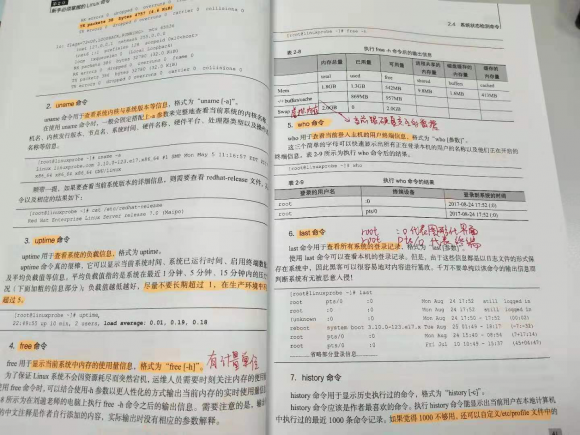 新手必须掌握的Linux命令
RX errors 0 dropped 0 overruns 0 frame 0
TX packets 38 bytes 4757 (4.6 KiB)
TX errors 0 dropped 0 overruns 0 carrier 0 collisions 0
inet 127.0.0.1 netmask 255.0.0.0
2. uname 命令
uname 命令用于查看系统内核与系统版本等信息，格式为“uname [-a]”。
名称等信息。
[root@linuxprobe ~]# uname -a
x86_64 x86_64 x86_64 GNU/Linux
顺带一提，如果要查看当前系统版本的详细信息，则需要查看 redhat-release 文件，
令以及相应的结果如下：
[root@linuxprobe ~]# cat /etc/redhat-release
Red Hat Enterprise Linux Server release 7.0 (Maipo)
3. uptime 命令
uptime 用于查看系统的负载信息，格式为 uptime。
uptime 命令真的很棒，它可以显示当前系统时间、系统已运行时间、启用终端数量
及平均负载值等信息。平均负载值指的是系统在最近 1 分钟、5 分钟、15 分钟内的压力
况（下面加粗的信息部分）；负载值越低越好，尽量不要长期超过 1，在生产环境中不
超过 5。
[root@linuxprobe ~]# uptime
22:49:55 up 10 min, 2 users, load average: 0.01, 0.19, 0.18
4. free 命令
有计量单位
free 用于显示当前系统中内存的使用量信息，格式为“free [-h]”。
为了保证 Linux 系统不会因资源耗尽而突然宕机，运维人员需要时刻关注内存的使用
使用 free 命令时，可以结合使用-h 参数以更人性化的方式输出当前内存的实时使用量信息
所示为在刘遄老师的电脑上执行 free -h 命令之后的输出信息。需要注意的是，输出
的中文注释是作者自行添加的内容，实际输出时没有相应的参数解释。
2.4 系统状态检测命令
[root@linuxprobe ~]# free -h
表 2-8 执行 free -h 命令后的输出信息
内存总量 已用量 可用量 进程共享的内存量 磁盘缓存的内存量 缓存的内存量
total used free shared buffers cached
Mem: 1.8GB 1.3GB 542MB 9.8MB 1.6MB 413MB
-/+ buffers/cache 869MB 957MB
Swap 2.0GB 0B 2.0GB
5. who 命令
who 用于查看当前登入主机的用户终端信息，格式为“who [参数]”。
这三个简单的字母可以快速显示出所有正在登录本机的用户的名称以及他们正在开启的
终端信息。表 2-9 所示为执行 who 命令后的结果。
[root@linuxprobe ~]# who
表 2-9 执行 who 命令的结果
登录的用户名 终端设备 登录到系统的时间
root :0 2017-08-24 17:52 (:0)
root pts/0 2017-08-24 17:52 (:0)
6. last 命令
root :0 代表图形化界面
root pts/0 代表终端
last 命令用于查看所有系统的登录记录，格式为“last [参数]”。
使用 last 命令可以查看本机的登录记录。但是，由于这些信息都是以日志文件的形式保
存在系统中，因此黑客可以很容易地对内容进行篡改。千万不要单纯以该命令的输出信息而
判断系统有无被恶意入侵！
[root@linuxprobe ~]# last
root pts/0 :0 Mon Aug 24 17:52 still logged in
root :0 :0 Mon Aug 24 17:52 still logged in
(unknown :0 :0 Mon Aug 24 17:50 - 17:52 (00:02)
reboot system boot 3.10.0-123.el7.x
root pts/0 :0
root pts/0 :0
………………省略部分登录信息………………
7. history 命令
history 命令用于显示历史执行过的命令，格式为“history [-c]”。
history 命令应该是作者最喜欢的命令。执行 history 命令能显示出当前用户在本地计算机
中执行过的最近 1000 条命令记录。如果觉得 1000 不够用，还可以自定义/etc/profile 文件中的